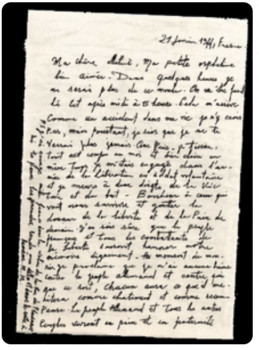 21 février 1944, Fresne
Ma chère Méliné, Ma petite orpheline
bien aimée. Dans quelques heures je
ne serai plus de ce monde. On va être fusil
lé cet après midi à 15 heures. Cela m'arrive
Comme un accident dans ma vie je n'y crois
Pas, mais pourtant, je sais que je ne te
verrai plus jamais. Que Puis-je t'écrire,
Tout est confus en moi et bien clair en
même temps je m'étais engagé dans l'ar-
mée de la libération en soldat volontaire
et je meurs à deux doigts de la Vic-
toire et du but. Bonheur à ceux qui
vont nous survivre et goûter la
douceur de la liberté et de la Paix de
demain. J'en suis sûr que le peuple
français et tous les combattants de
la liberté sauront honorer notre
mémoire dignement. Au moment de mou-
rir je proclame que je n'ai aucune haine
contre le peuple allemand et contre qui
que ce soit, Chacun aura ce qu'il mé-
ritera comme châtiment et comme recom-
Pense. Le peuple Allemand et tous les autres
Peuples vivront en paix et en fraternité